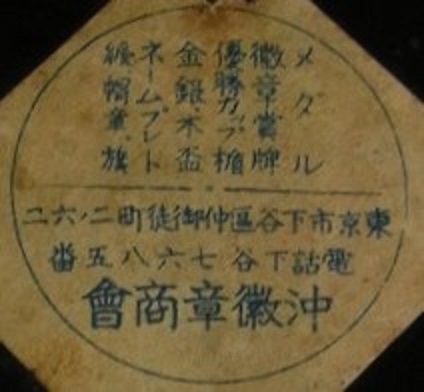 メダル
徽章賞牌
優勝カップ楯
金銀木盃
ネームプレート
綬、帽章、旗
東京市下谷區仲御徒町二ノ六二
電話下谷七六八五番
沖徽章商會